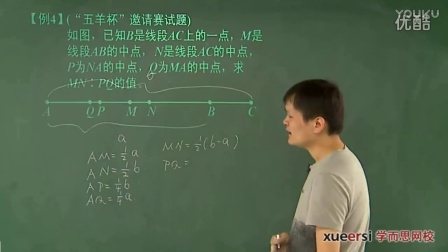 YOUKU
优酷
【例4】(“五羊杯”邀请赛试题)
如图，已知B是线段AC上的一点，M是
线段AB的中点，N是线段AC的中点，
P为NA的中点，Q为MA的中点，求
MN∶PQ的值。
b
A Q P M N B C
a
AM=½a
AN=½b
AP=¼b
AQ=¼a
MN=½(b-a)
PQ=
xueersi 学而思网校